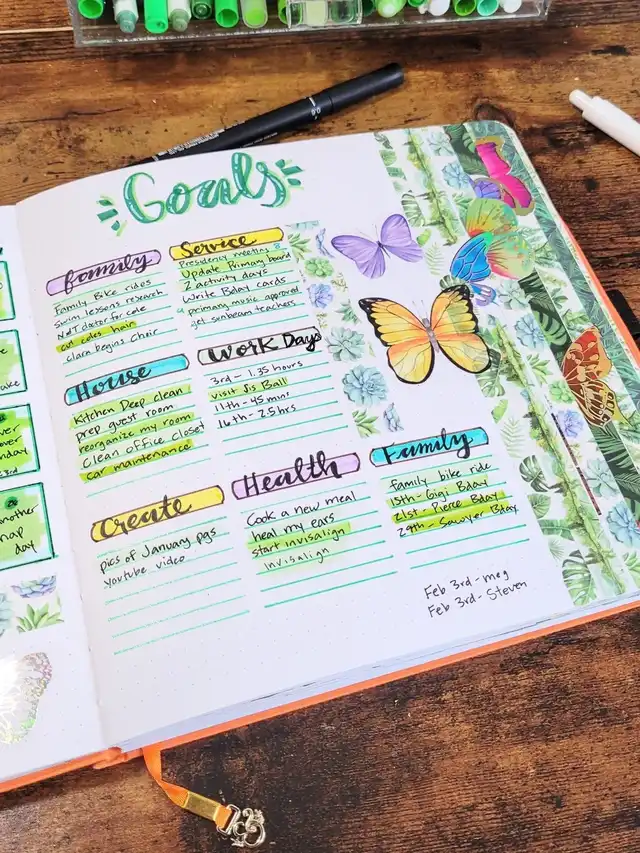 Goals
family
Family Bike rides
Swim lessons research
cut coles hair
clara begins Choir
Service
Presidency meeting 8
Update Primary board
2 activity days
Write Bday cards
primary music approved
get sunbeam teachers
House
Kitchen Deep clean
prep guest room
reorganize my room
Clean office closet
car maintenance
Work Days
3rd - 1.35 hours
visit Sis Ball
11th - 45 mins
16th - 2.5 hrs
Create
pics of January pgs
Youtube video
Health
Cook a new meal
heal my ears
start invisalign
invisalign
Family
Family bike ride
15th - Gigi Bday
21st - Pierce Bday
29th - Sawyer Bday
Feb 3rd - meg
Feb 3rd - Steven
another
nap
day